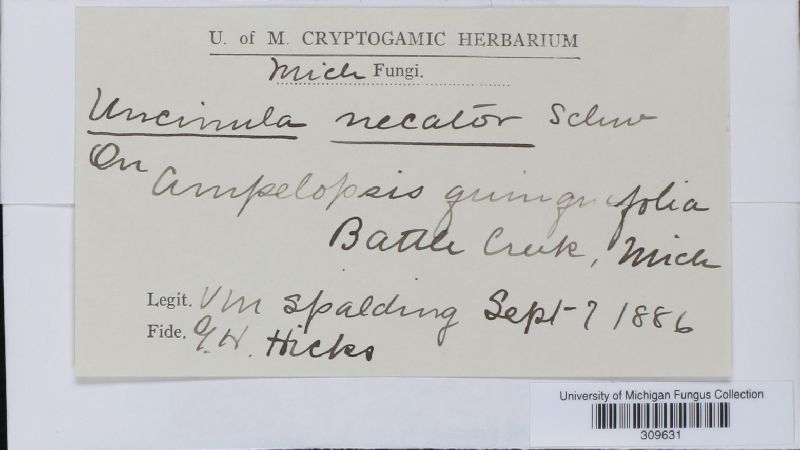 U. of M. CRYPTOGAMIC HERBARIUM
Mich Fungi.
Uncinula necator Schw
On
Ampelopsis quinquefolia
Battle Creek, Mich
Legit. VM Spalding Sept 7 1886
Fide. G.H. Hicks
University of Michigan Fungus Collection
309631